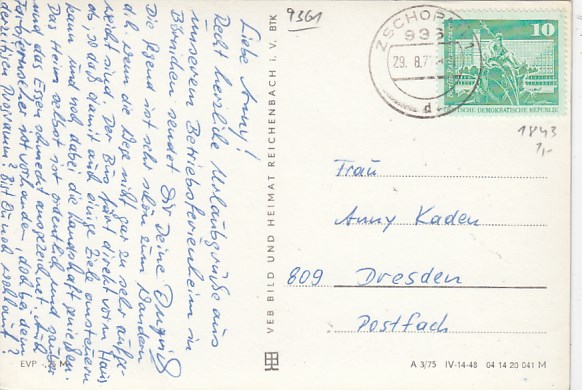 Liebe Anny!
Recht herzliche Urlaubsgrüße aus
unserem Betriebsferienheim in
Börnichen sendet Dir Deine
Die Gegend ist sehr schön zum Wandern
d.h. wenn die Wege nicht gar zu sehr aufge-
weicht sind. Der Bus fährt direkt vom Haus
ab, so daß damit auch einige Ziele ansteuern
kann und noch dabei die Landschaft genießen.
Das Heim selbst ist ordentlich und sauber
und das Essen schmeckt ausgezeichnet. Auch
Farbfernseher ist vorhanden, doch bei dem
derzeitigen Programm? Bist Du noch wohlauf?
EVP M
VEB BILD UND HEIMAT REICHENBACH I. V. BTK
9361
ZSCHOPAU 1
936
29. 8. 7
d
10
DEUTSCHE DEMOKRATISCHE REPUBLIK
1843
1,-
Frau
Anny Kaden
809 Dresden
Postfach
A 3/75 IV-14-48 04 14 20 041 M